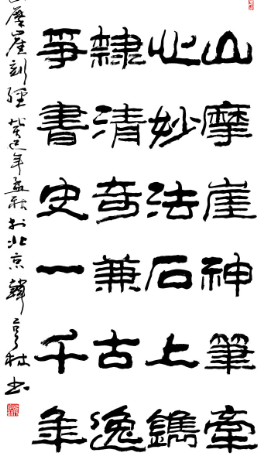 山摩崖神筆牽
妙法石上鐫
隸清奇兼古逸
書史一千年
摩崖刻經 癸巳年孟秋於北京 韓亨林書